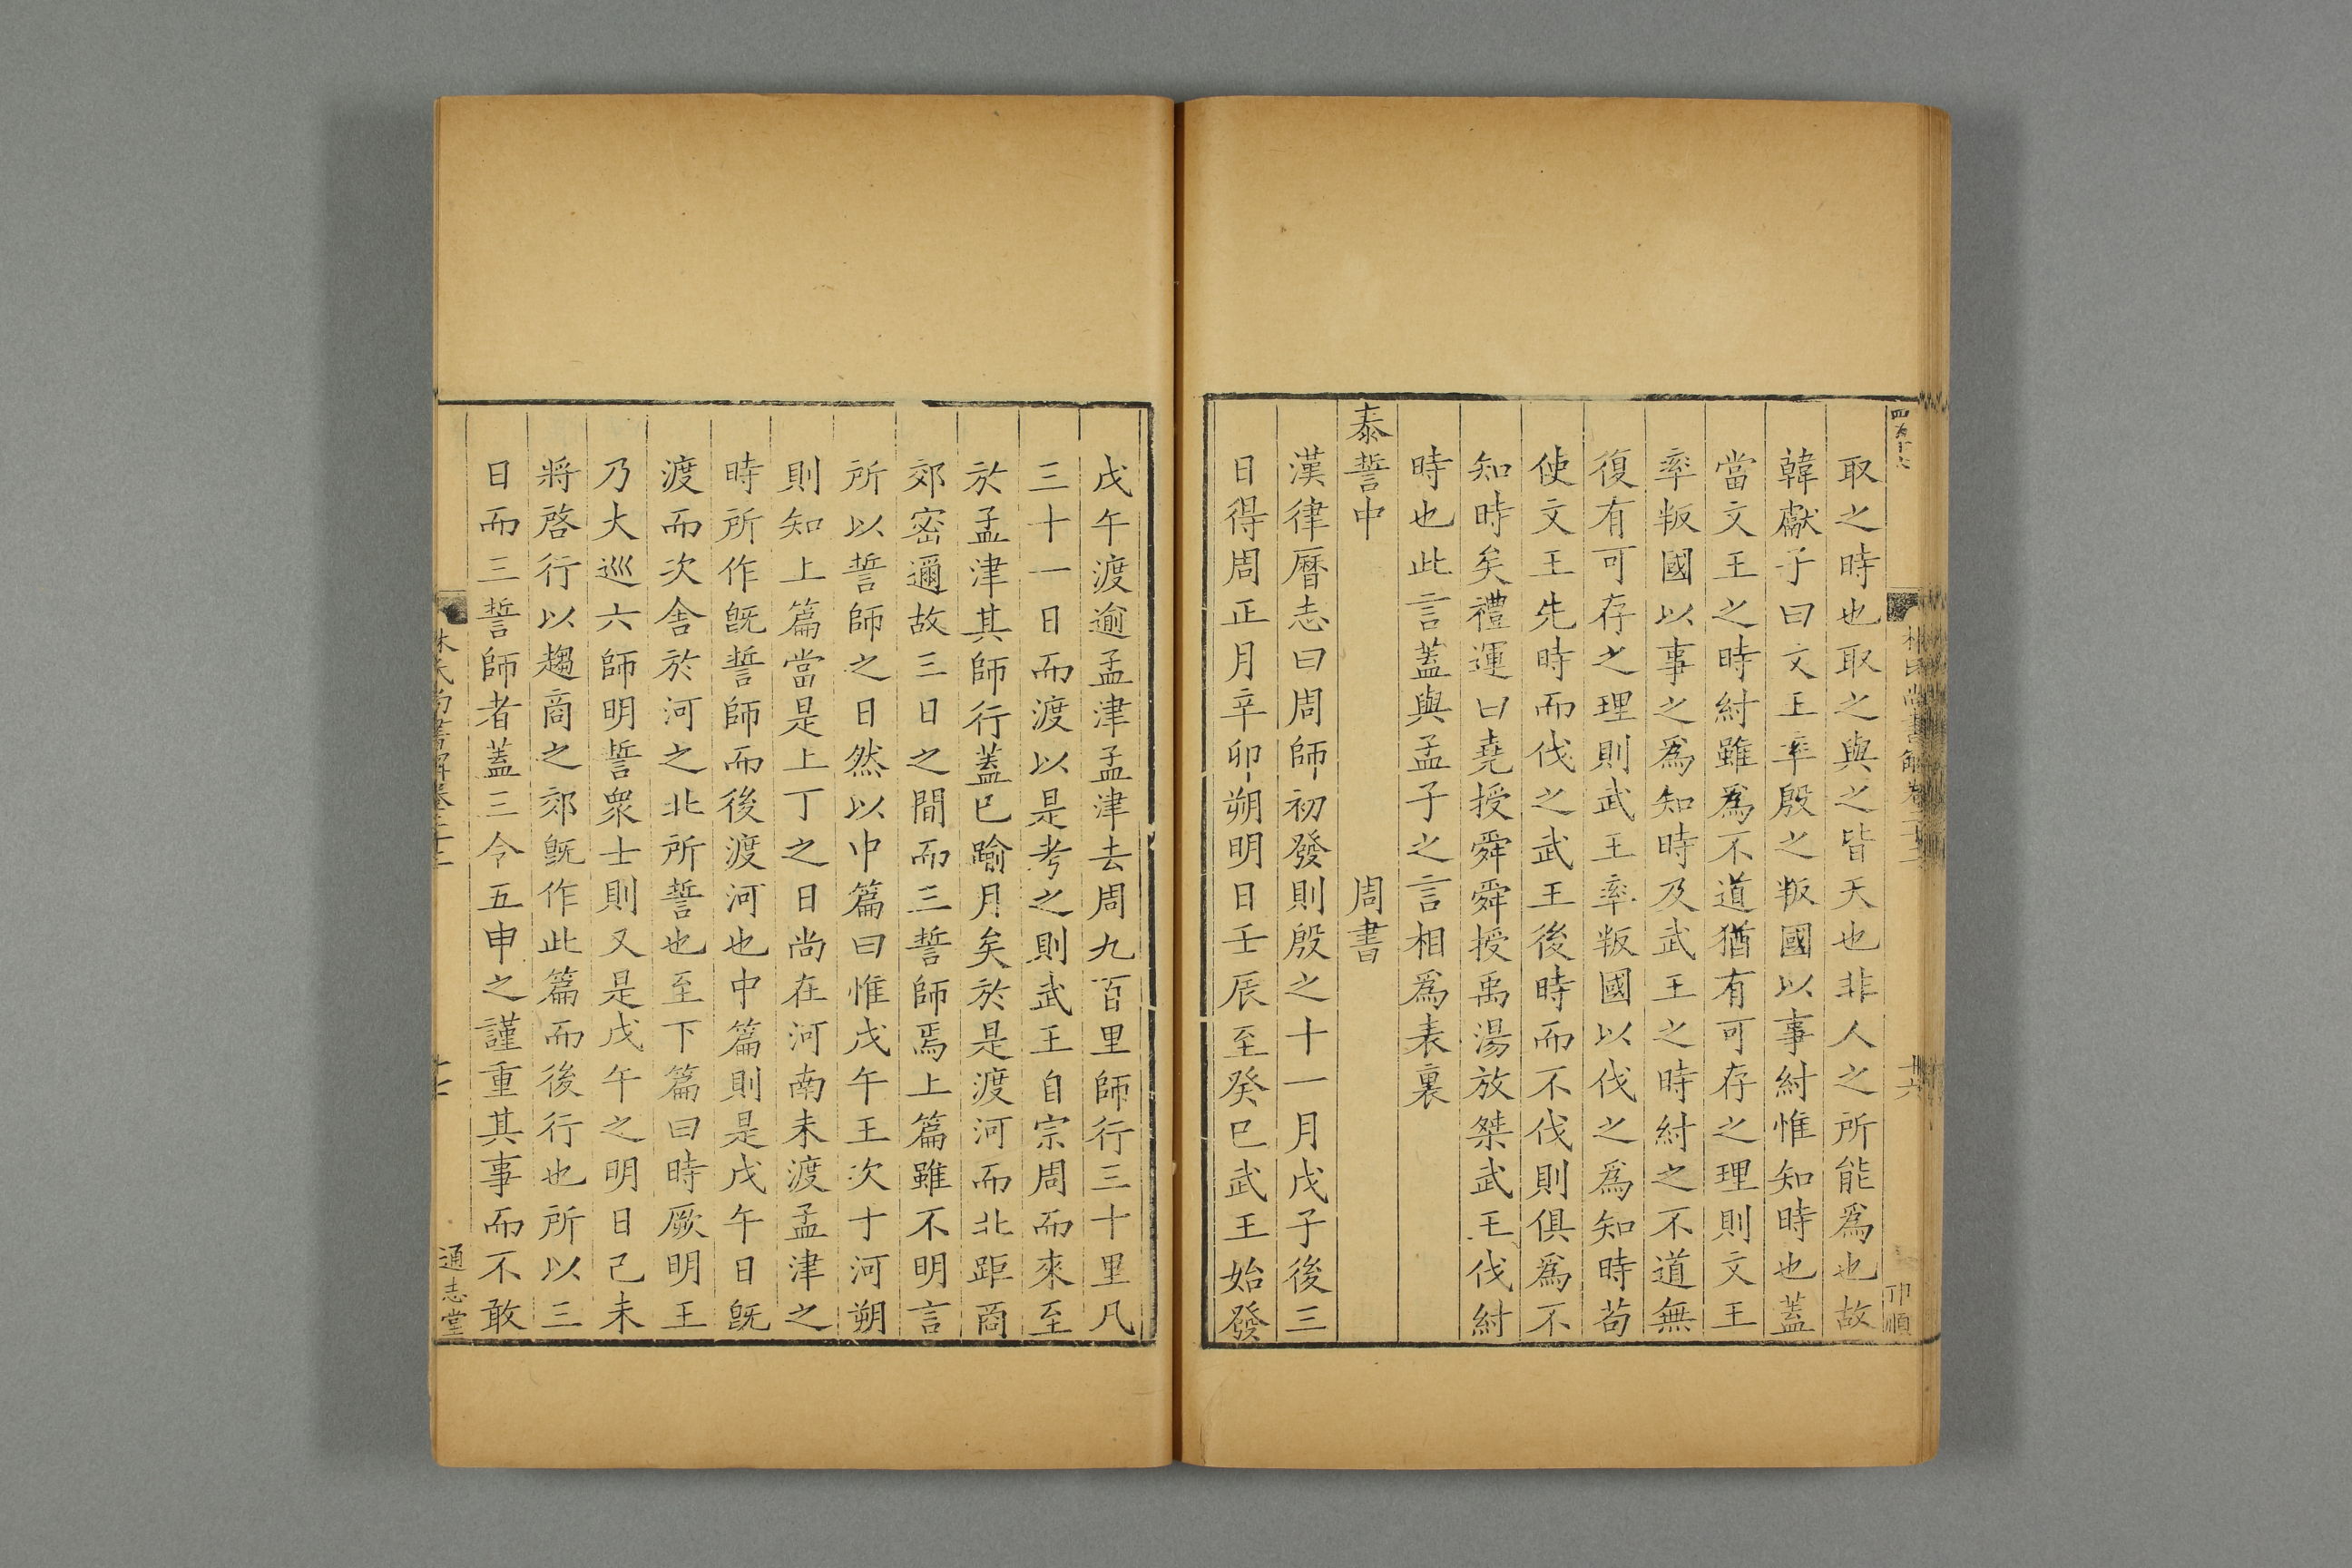 林氏尚書解卷二十二
十六
取之時也取之與之皆天也非人之所能爲也故
韓獻子曰文王率殷之叛國以事紂惟知時也蓋
當文王之時紂雖爲不道猶有可存之理則文王
率叛國以事之爲知時及武王之時紂之不道無
復有可存之理則武王率叛國以伐之爲知時苟
使文王先時而伐之武王後時而不伐則俱爲不
知時矣禮運曰堯授舜舜授禹湯放桀武王伐紂
時也此言蓋與孟子之言相爲表裏
泰誓中 周書
漢律曆志曰周師初發則殷之十一月戊子後三
日得周正月辛卯朔明日壬辰至癸巳武王始發
戊午渡逾孟津孟津去周九百里師行三十里凡
三十一日而渡以是考之則武王自宗周而來至
於孟津其師行蓋已踰月矣於是渡河而北距商
郊密邇故三日之間而三誓師焉上篇雖不明言
所以誓師之日然以中篇曰惟戊午王次于河朔
則知上篇當是上丁之日尚在河南未渡孟津之
時所作旣誓師而後渡河也中篇則是戊午日旣
渡而次舍於河之北所誓也至下篇曰時厥明王
乃大巡六師明誓衆士則又是戊午之明日己未
將啓行以趨商之郊旣作此篇而後行也所以三
日而三誓師者蓋三令五申之謹重其事而不敢
通志堂